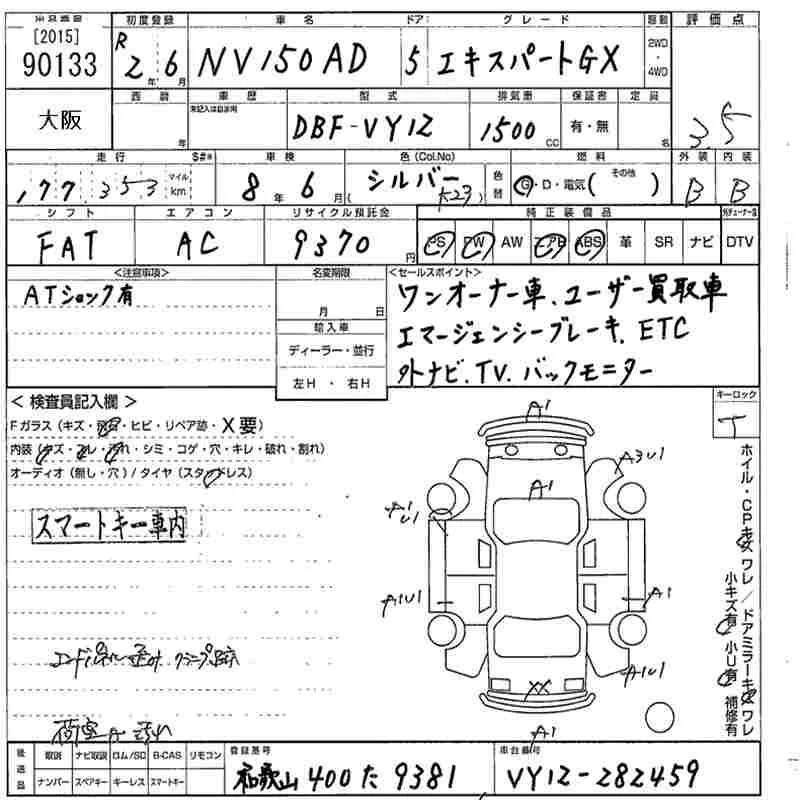 [2015]
90133
大阪
初度登録 車名 ドア グレード 駆動 評価点
R 2年 6月 NV150AD 5 エキスパートGX 2WD・4WD 3.5
西暦 車歴 型式 排気量 保証書 定員
年 未記入は自家用 DBF-VY12 1500cc 有・無 名
走行 S#* 車検 色(Col.No) 燃料 外装 内装
,177,353 マイル km 8年 6月 シルバー(K23) 色替 G・D・電気(その他) B B
シフト エアコン リサイクル預託金 純正装備品
FAT AC 9370円 PS PW AW エアB ABS 革 SR ナビ DTV
<注意事項> 名変期限 <セールスポイント>
ATショック有
月 日
輸入車
ディーラー・並行
左H・右H
ワンオーナー車、ユーザー買取車
エマージェンシーブレーキ、ETC
外ナビ、TV、バックモニター
<検査員記入欄>
Fガラス(キズ・飛石・ヒビ・リペア跡・X要)
内装(キズ・スレ・汚れ・シミ・コゲ・穴・キレ・破れ・割れ)
オーディオ(無し・穴)/タイヤ(スタッドレス)
スマートキー車内
クランプ跡
荷室 汚れ
キーロック
ホイル・CPキズワレ/ドアミラーキズワレ
小キズ有 小U有 補修有
A1
A3U1
A1
A1
U1
A1U1
A1
A1U1
XX
A1
後送品 取説 ナビ取説 ロム/SD B-CAS リモコン
ナンバー スペアキー キーレス スマートキー
登録番号
和歌山 400 た 9381
車台番号
VY12-282459